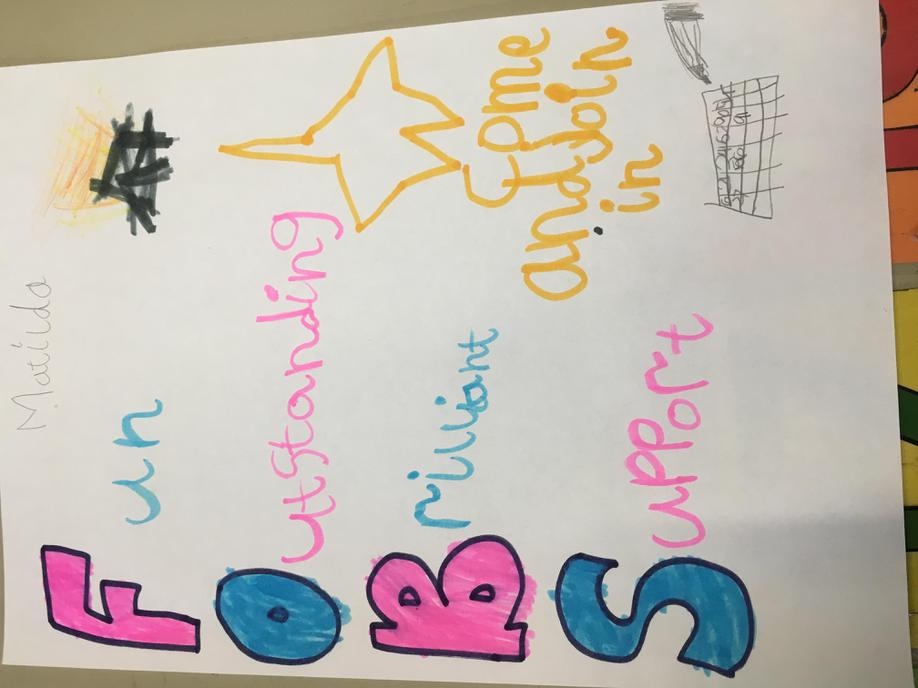 Matilda
Fun
Outstanding
Brilliant
Support
Come
and Join
in